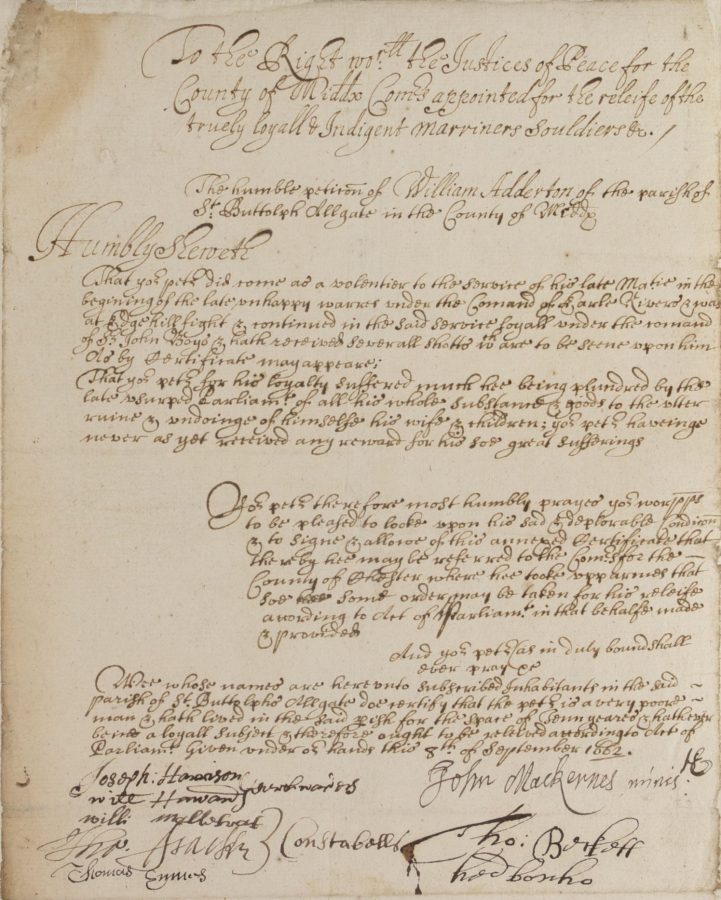 To the Right wor:ll the Justices of Peace for the
County of Middx Com:rs appointed for the releife of the
truely loyall & Indigent Marriners Souldiers &c. /
The humble peticon of William Adderton of the parish of
St. Buttolph Allgate in the County of Midd
Humbly Sheweth
That yor petr did come as a volentier to the service of his late Matie in the
begining of the late unhappy warres under the Comand of Earle Rivers & was
at Edge hill fight & continued in the said service loyall under the comand
of Sr. John Boys & hath received severall shotts wch are to be seene upon him
As by Certificate may appeare;
That yor petr for his loyalty suffered much hee being plundred by the
late usurped Parliamt. of all his whole substance & goods to the utter
ruine & undoinge of himselfe his wife & children; yor petr haveinge
never as yet received any reward for his soe great sufferings
Yor petr therefore most humbly prayes yor worpps
to be pleased to looke upon his sad & deplorable Condicon
& to signe & allowe of this annexed Certificate that
thereby hee may be referred to the Comrs for the
County of Chester where hee tooke upp armes that
soe some order may be taken for his releife
according to Act of Parliamt. in that behalfe made
& provided
And yor petr (as in duty bound shall
ever pray &c
Wee whose names are hereunto subscribed Inhabitants in the said
parish of St. Buttolphs Allgate doe certify that the petr is a very poore
man & hath lived in the said pish for the space of Tenn yeares & hath ever
beine a loyall subject & therefore ought to be releived according to Act of
Parliamt. Given under or hands this 8th of September 1662.
Joseph: Harrison
will Haward
willi
John Mackernes minis:
Tho: Constabells
Tho: Beckett
Thomas